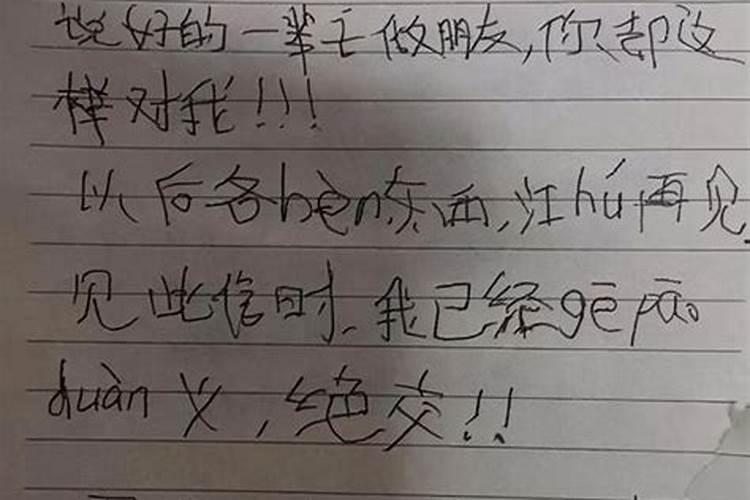 说好的一辈子做朋友,你却这
样对我!!!
以后各bèn东西,江hú再见.
见此信时.我已经gē pāo
duàn义,绝交!!